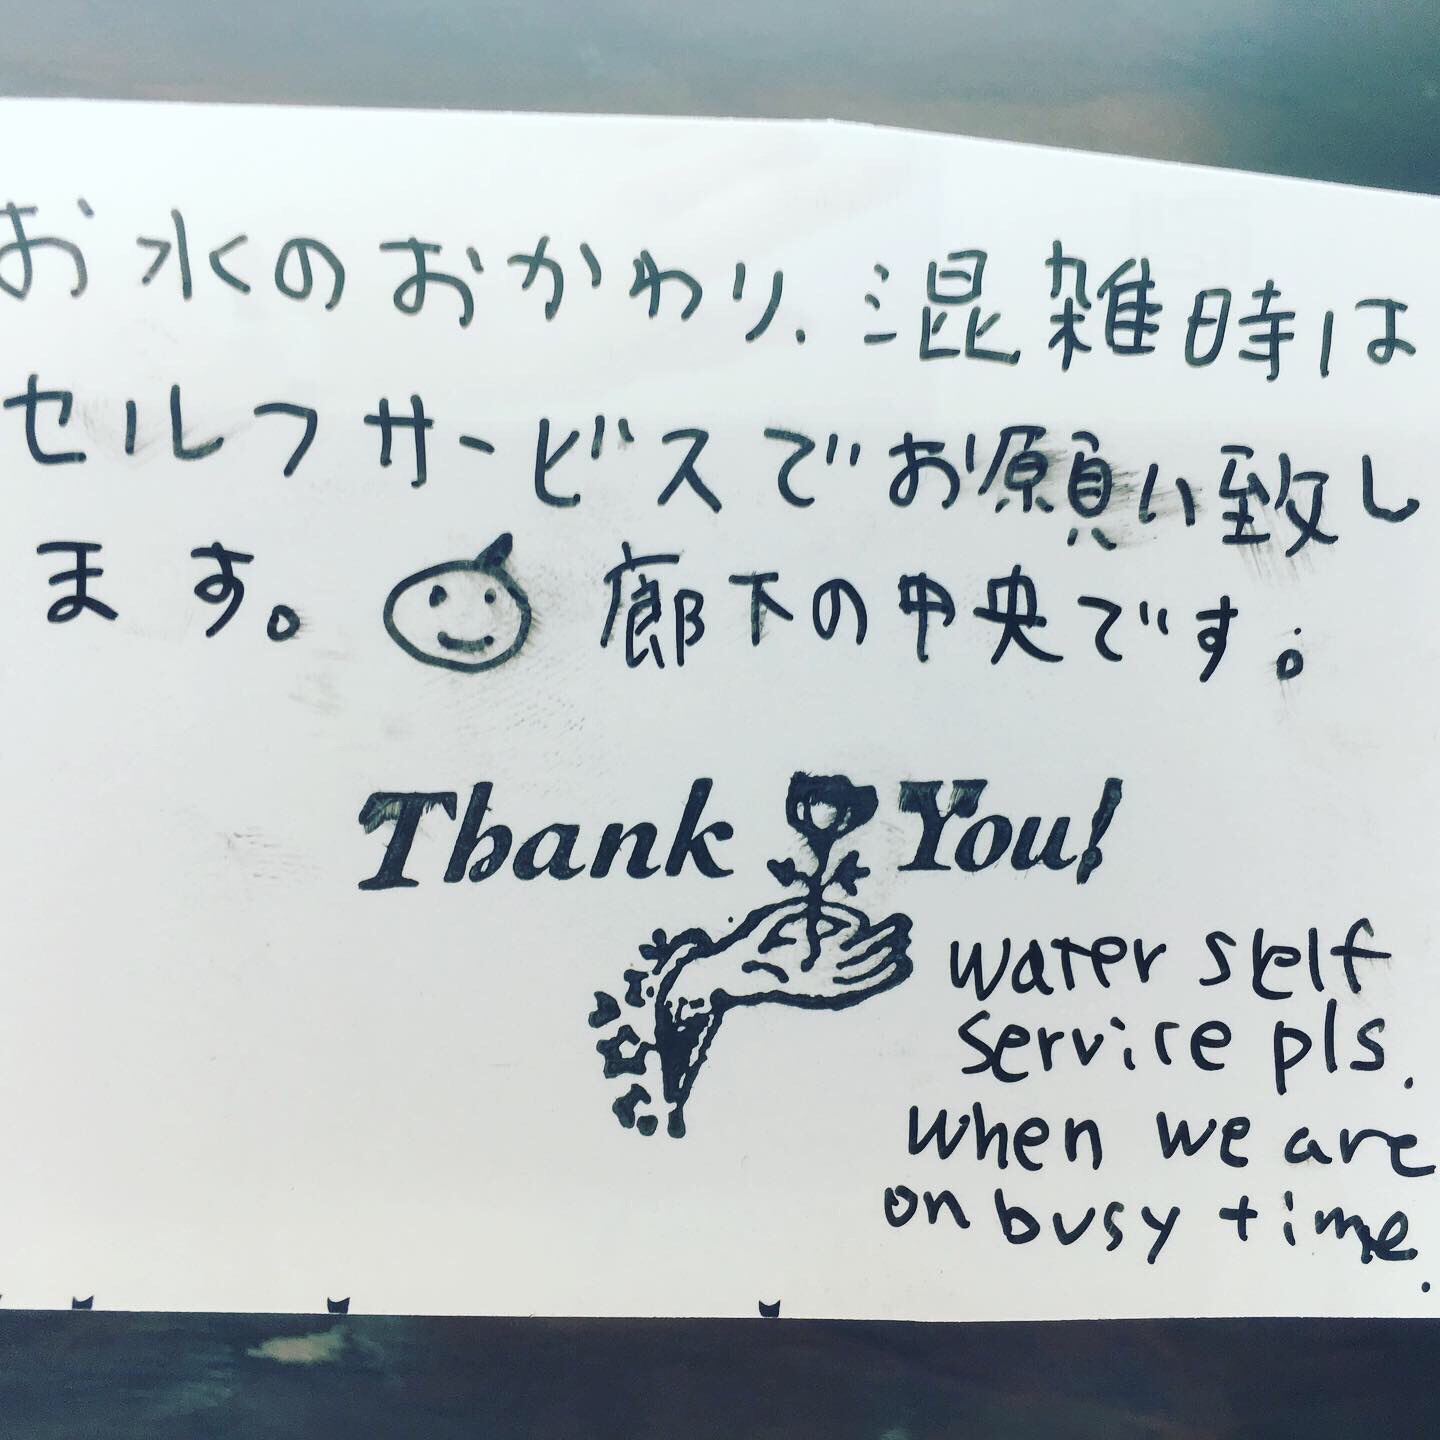 お水のおかわり、混雑時は
セルフサービスでお願い致し
ます。 廊下の中央です。
Thank You!
water self
service pls.
when we are
on busy time.